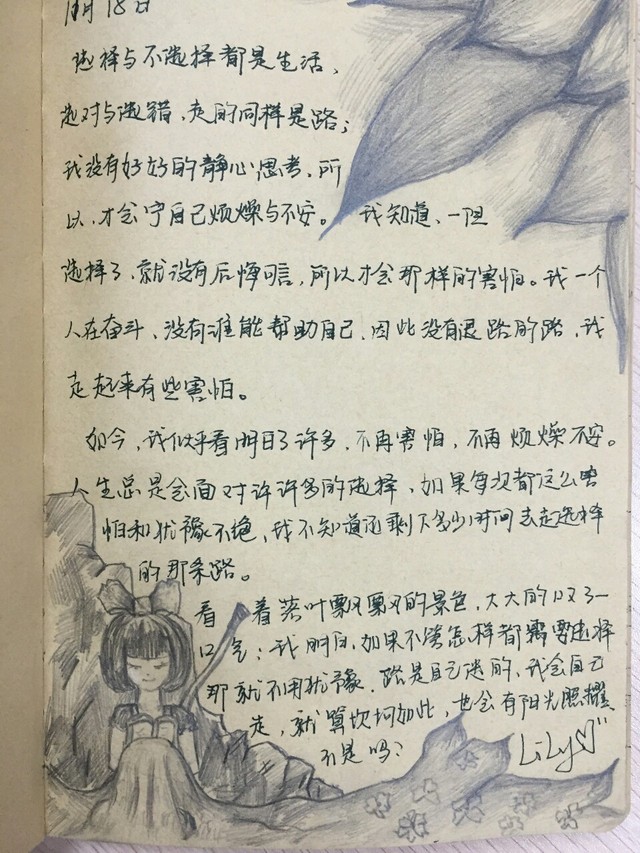 月18日
选择与不选择都是生活，
选对与选错，走的同样是路；
我没有好好的静心思考，所
以，才会令自己烦燥与不安。 我知道，一旦
选择了，就没有后悔可言，所以才会那样的害怕。我一个
人在奋斗，没有谁能帮助自己，因此没有退路的路，我
走起来有些害怕。
如今，我似乎看明白了许多，不再害怕，不再烦燥不安。
人生总是会面对许许多多的选择，如果每次都这么害
怕和犹豫不绝，我不知道还剩下多少时间去走选择
的那条路。
看着落叶飘飘的景色，大大的叹了一
口气；我明白，如果不管怎样都需要选择
那就不用犹豫，路是自己选的，我会自己
走，就算坎坷如此，也会有阳光照耀，
不是吗？ Lily♡